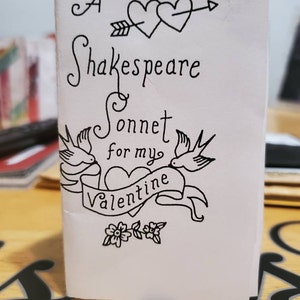 A
Shakespeare
Sonnet
for my
Valentine